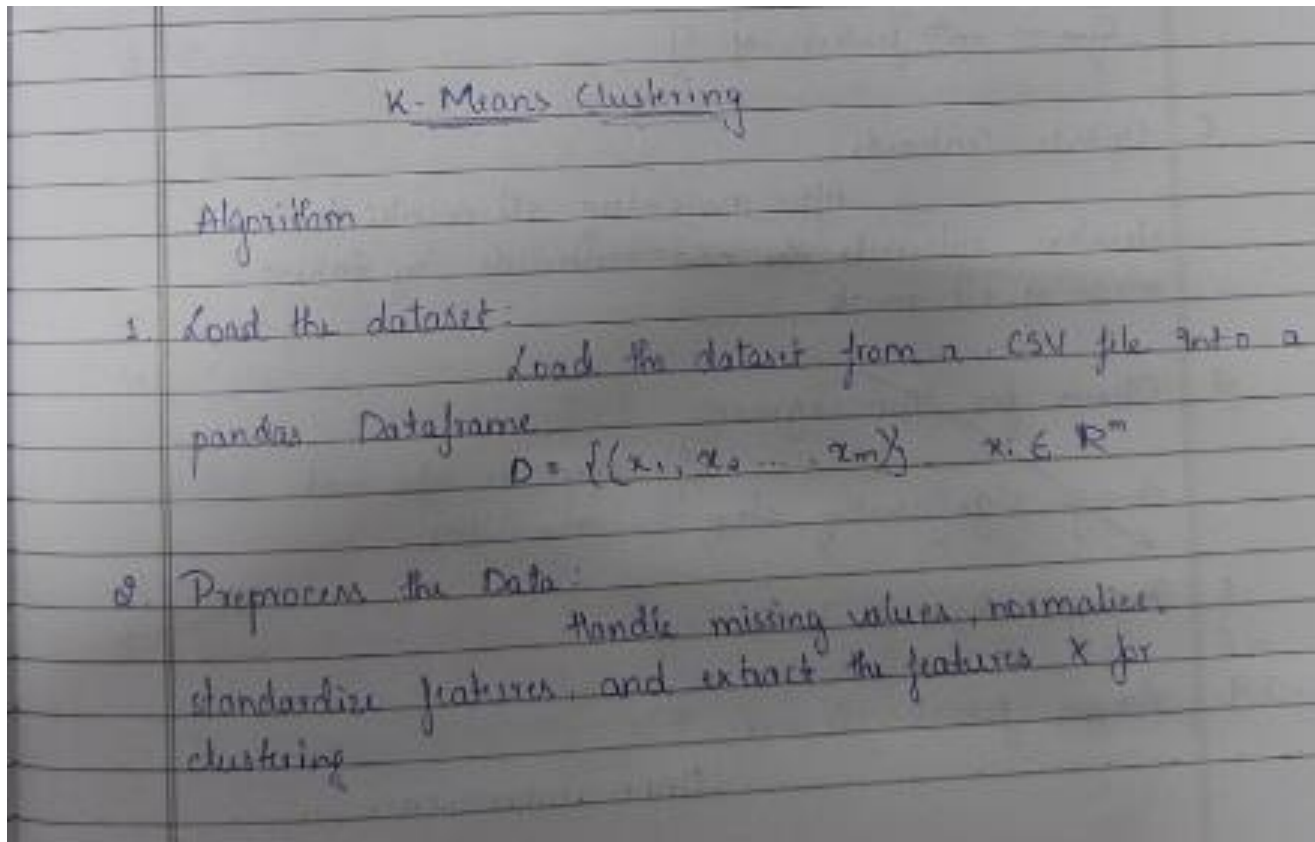 K-Means Clustering
Algorithm
1. Load the dataset:
Load the dataset from a CSV file into a
pandas Dataframe
D = {(x₁, x₂ ... xm)} xᵢ ∈ ℝᵐ
2. Preprocess the Data:
Handle missing values, normalize,
standardize features, and extract the features X for
clustering